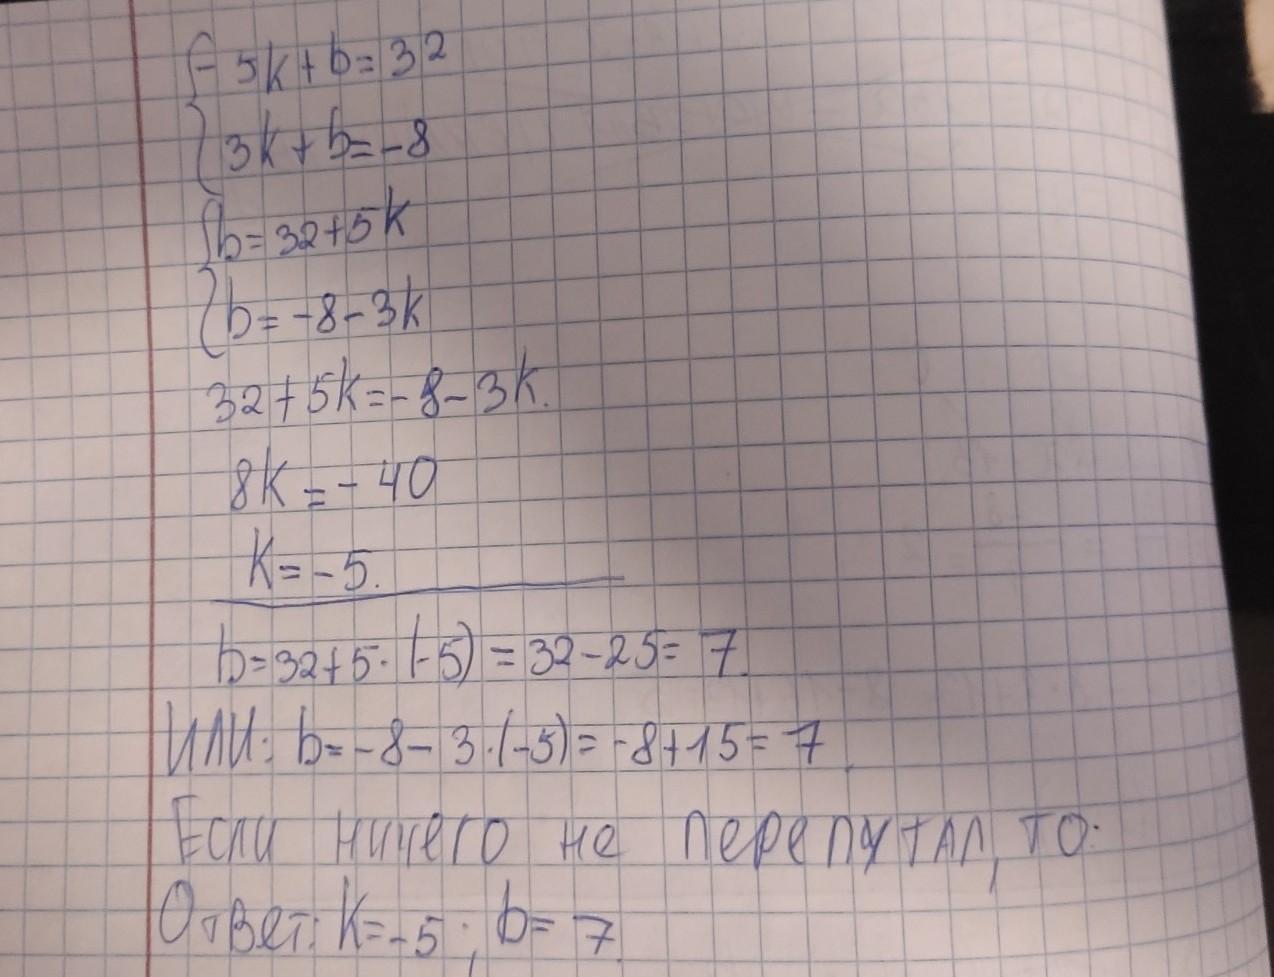 -5k+b=32
3k+b=-8
b=32+5k
b=-8-3k
32+5k=-8-3k.
8k=-40
k=-5.
b=32+5·(-5)=32-25=7.
ИЛИ: b=-8-3·(-5)=-8+15=7.
Если ничего не перепутал, то:
Ответ: k=-5; b=7.